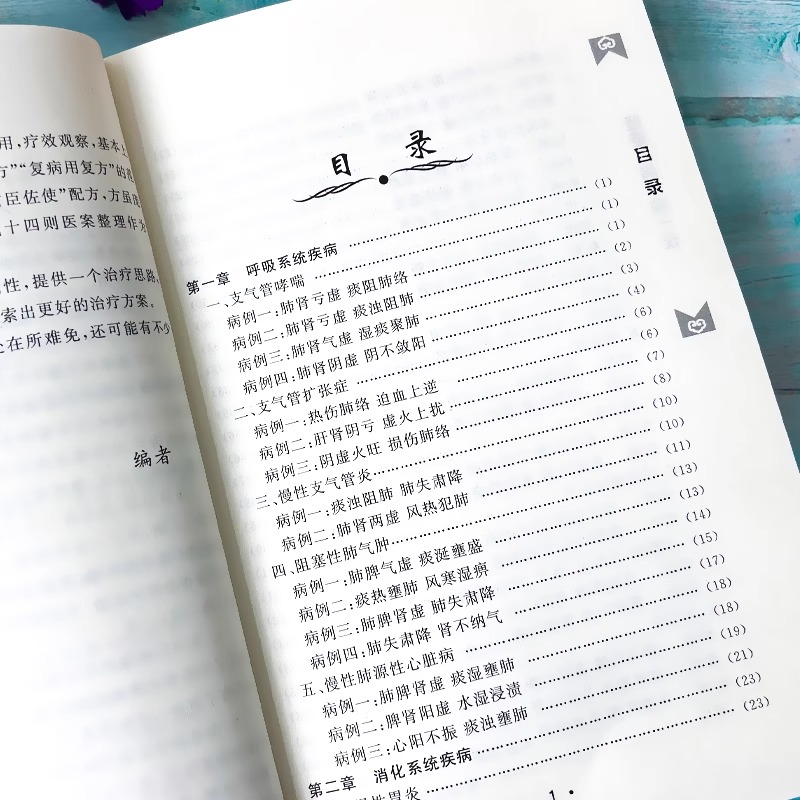 用，疗效观察，基本上
方”“复病用复方”的
臣佐使”配方，方虽庞
十四则医案整理作为
性，提供一个治疗思路，
索出更好的治疗方案。
在所难免，还可能有不少
编者
目 录
第一章 呼吸系统疾病 ……(1)
一、支气管哮喘 ……(1)
病例一：肺肾亏虚 痰阻肺络 ……(1)
病例二：肺肾亏虚 痰浊阻肺 ……(2)
病例三：肺肾气虚 湿痰聚肺 ……(3)
病例四：肺肾阴虚 阴不敛阳 ……(4)
二、支气管扩张症 ……(6)
病例一：热伤肺络 迫血上逆 ……(6)
病例二：肝肾阴亏 虚火上扰 ……(7)
病例三：阴虚火旺 损伤肺络 ……(8)
三、慢性支气管炎 ……(10)
病例一：痰浊阻肺 肺失肃降 ……(10)
病例二：肺肾两虚 风热犯肺 ……(11)
四、阻塞性肺气肿 ……(13)
病例一：肺脾气虚 痰涎壅盛 ……(13)
病例二：痰热壅肺 风寒湿痹 ……(14)
病例三：肺脾肾虚 肺失肃降 ……(15)
病例四：肺失肃降 肾不纳气 ……(17)
五、慢性肺源性心脏病 ……(18)
病例一：肺脾肾虚 痰湿壅肺 ……(18)
病例二：脾肾阳虚 水湿浸渍 ……(19)
病例三：心阳不振 痰浊壅肺 ……(21)
第二章 消化系统疾病 ……(23)
性胃炎 ……(23)
1 ·
目录